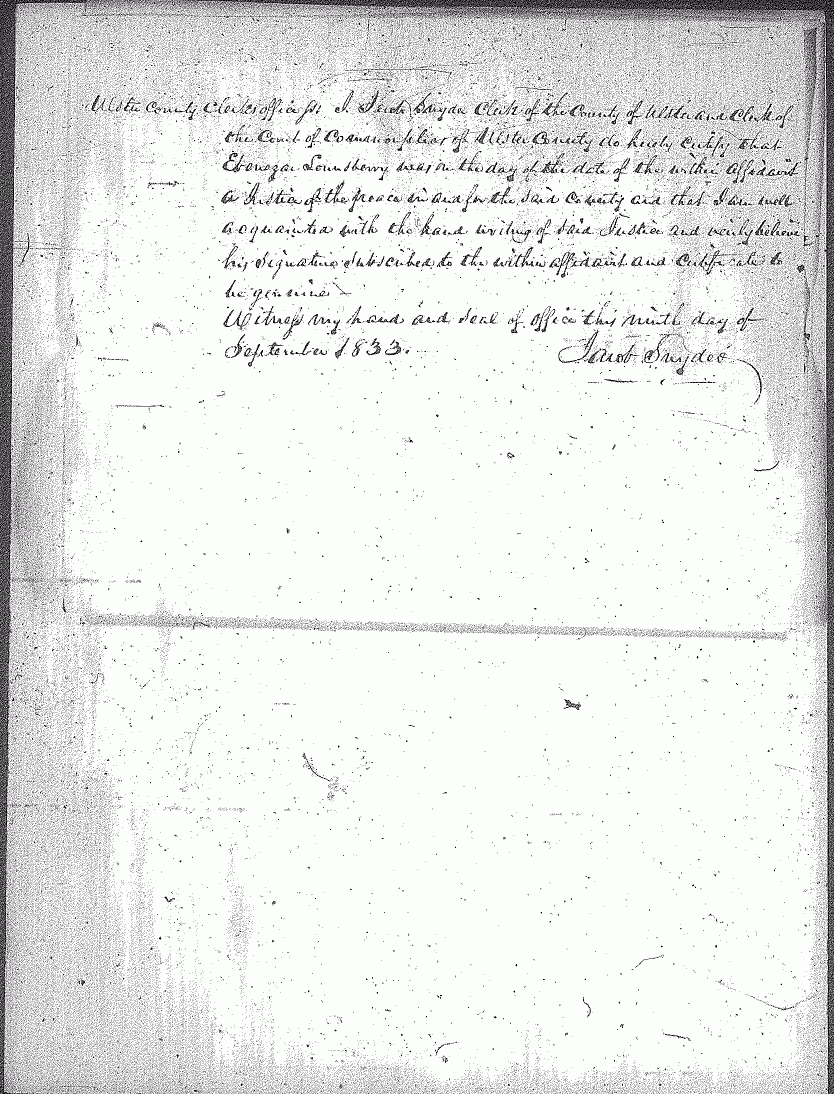 Ulster County Clerks office ss: I, Jacob Snyder Clerk of the County of Ulster and Clerk of
the Court of Common pleas of Ulster County do hereby certify that
Ebenezar Lounsberry was on the day of the date of the within Affidavit
a Justice of the peace in and for the said County and that I am well
acquainted with the hand writing of said Justice and verily believe
his signature subscribed to the within affidavit and certificate to
be genuine
Witness my hand and seal of office this ninth day of
September 1833.
Jacob Snyder